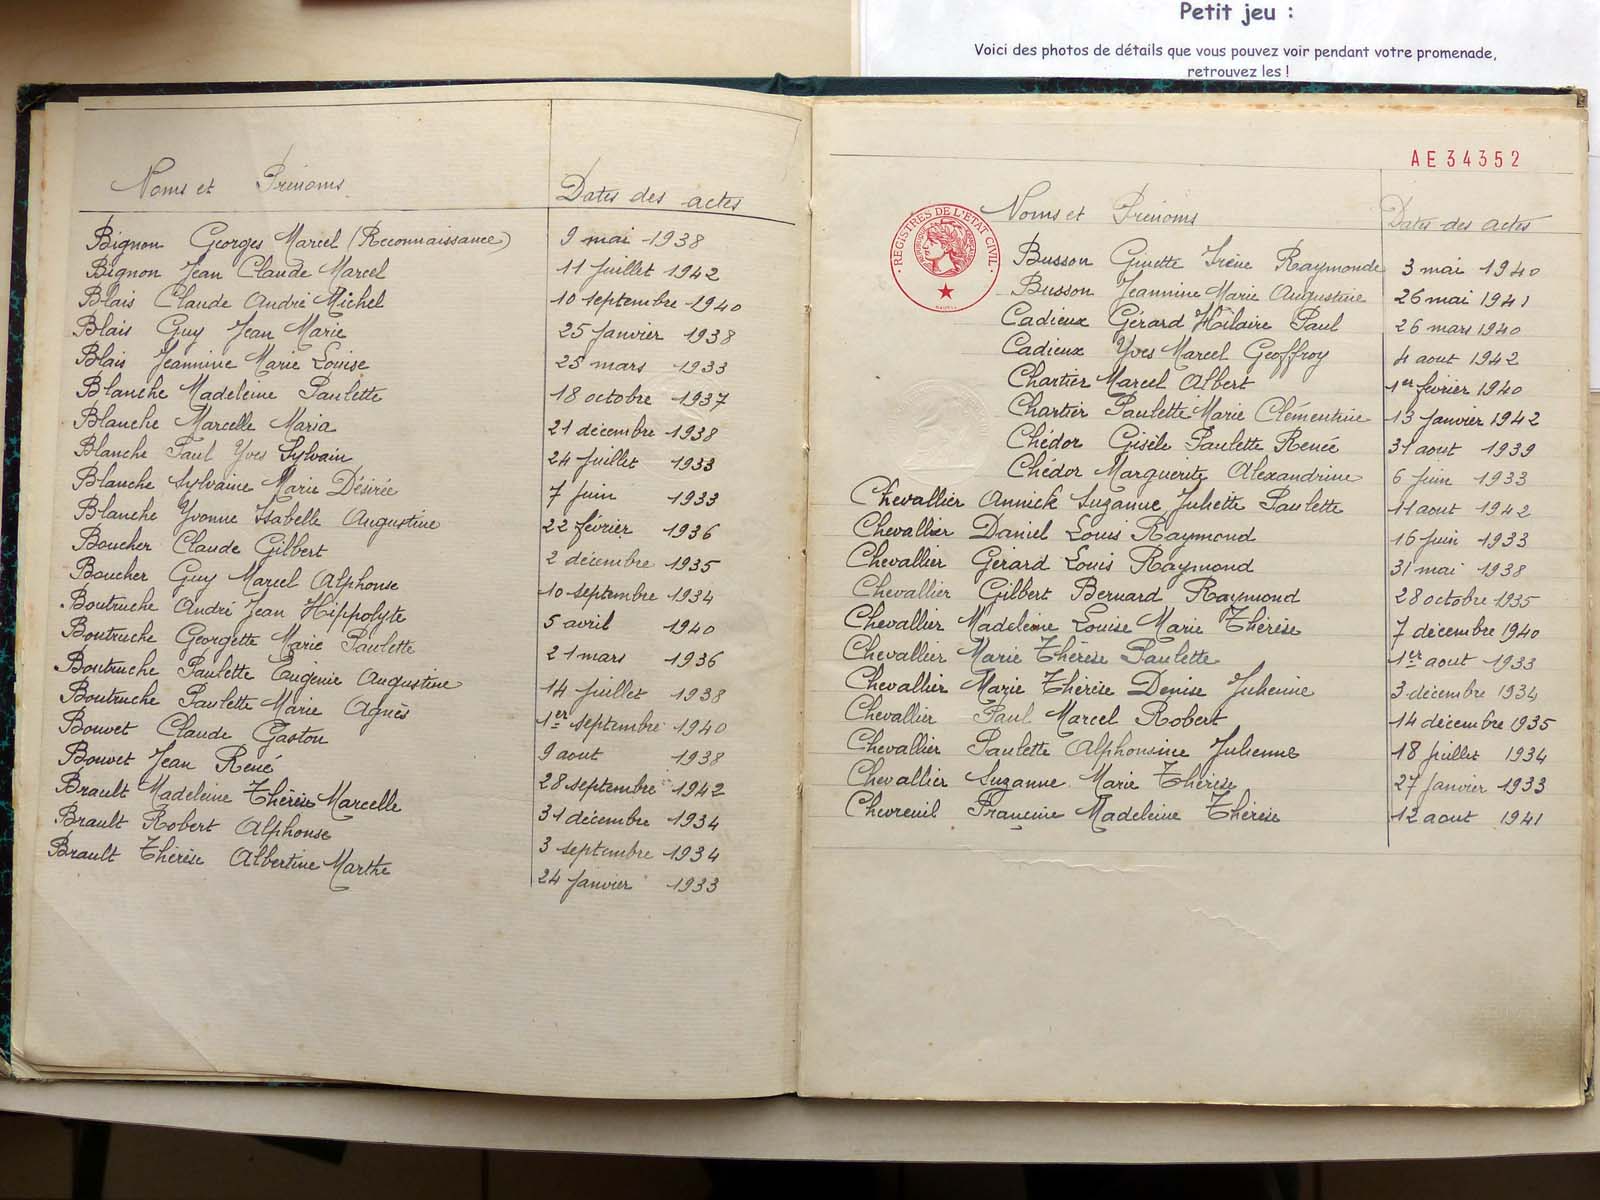 Petit jeu :
Voici des photos de détails que vous pouvez voir pendant votre promenade,
retrouvez les !
Noms et Prénoms Dates des actes
Bignon Georges Marcel (Reconnaissance) 9 mai 1938
Bignon Jean Claude Marcel 11 juillet 1942
Blais Claude André Michel 10 septembre 1940
Blais Guy Jean Marie 25 janvier 1938
Blais Jeannine Marie Louise 25 mars 1933
Blanche Madeleine Paulette 18 octobre 1937
Blanche Marcelle Maria 21 décembre 1938
Blanche Paul Yves Sylvain 24 juillet 1933
Blanche Sylvaine Marie Désirée 7 juin 1933
Blanche Yvonne Isabelle Augustine 22 février 1936
Boucher Claude Gilbert 2 décembre 1935
Boucher Guy Marcel Alphonse 10 septembre 1934
Boutruche André Jean Hippolyte 5 avril 1940
Boutruche Georgette Marie Paulette 21 mars 1936
Boutruche Paulette Eugénie Augustine 14 juillet 1938
Boutruche Paulette Marie Agnès 1er septembre 1940
Bouvet Claude Gaston 9 aout 1938
Bouvet Jean René 28 septembre 1942
Brault Madeleine Thérèse Marcelle 31 décembre 1934
Brault Robert Alphonse 3 septembre 1934
Brault Thérèse Albertine Marthe 24 janvier 1933
AE34352
REGISTRES DE L'ÉTAT CIVIL
Noms et Prénoms Dates des actes
Busson Ginette Irène Raymonde 3 mai 1940
Busson Jeannine Marie Augustine 26 mai 1941
Cadieux Gérard Hilaire Paul 26 mars 1940
Cadieux Yves Marcel Geoffroy 4 aout 1942
Chartier Marcel Albert 1er février 1940
Chartier Paulette Marie Clémentine 13 janvier 1942
Chédor Gisèle Paulette Renée 31 aout 1939
Chédor Marguerite Alexandrine 6 juin 1933
Chevallier Annick Suzanne Juliette Paulette 11 aout 1942
Chevallier Daniel Louis Raymond 16 juin 1933
Chevallier Gérard Louis Raymond 31 mai 1938
Chevallier Gilbert Bernard Raymond 28 octobre 1935
Chevallier Madeleine Louise Marie Thérèse 7 décembre 1940
Chevallier Marie Thérèse Paulette 1er aout 1933
Chevallier Marie Thérèse Denise Julienne 3 décembre 1934
Chevallier Paul Marcel Robert 14 décembre 1935
Chevallier Paulette Alphonsine Julienne 18 juillet 1934
Chevallier Suzanne Marie Thérèse 27 janvier 1933
Chevreuil Françine Madeleine Thérèse 12 aout 1941